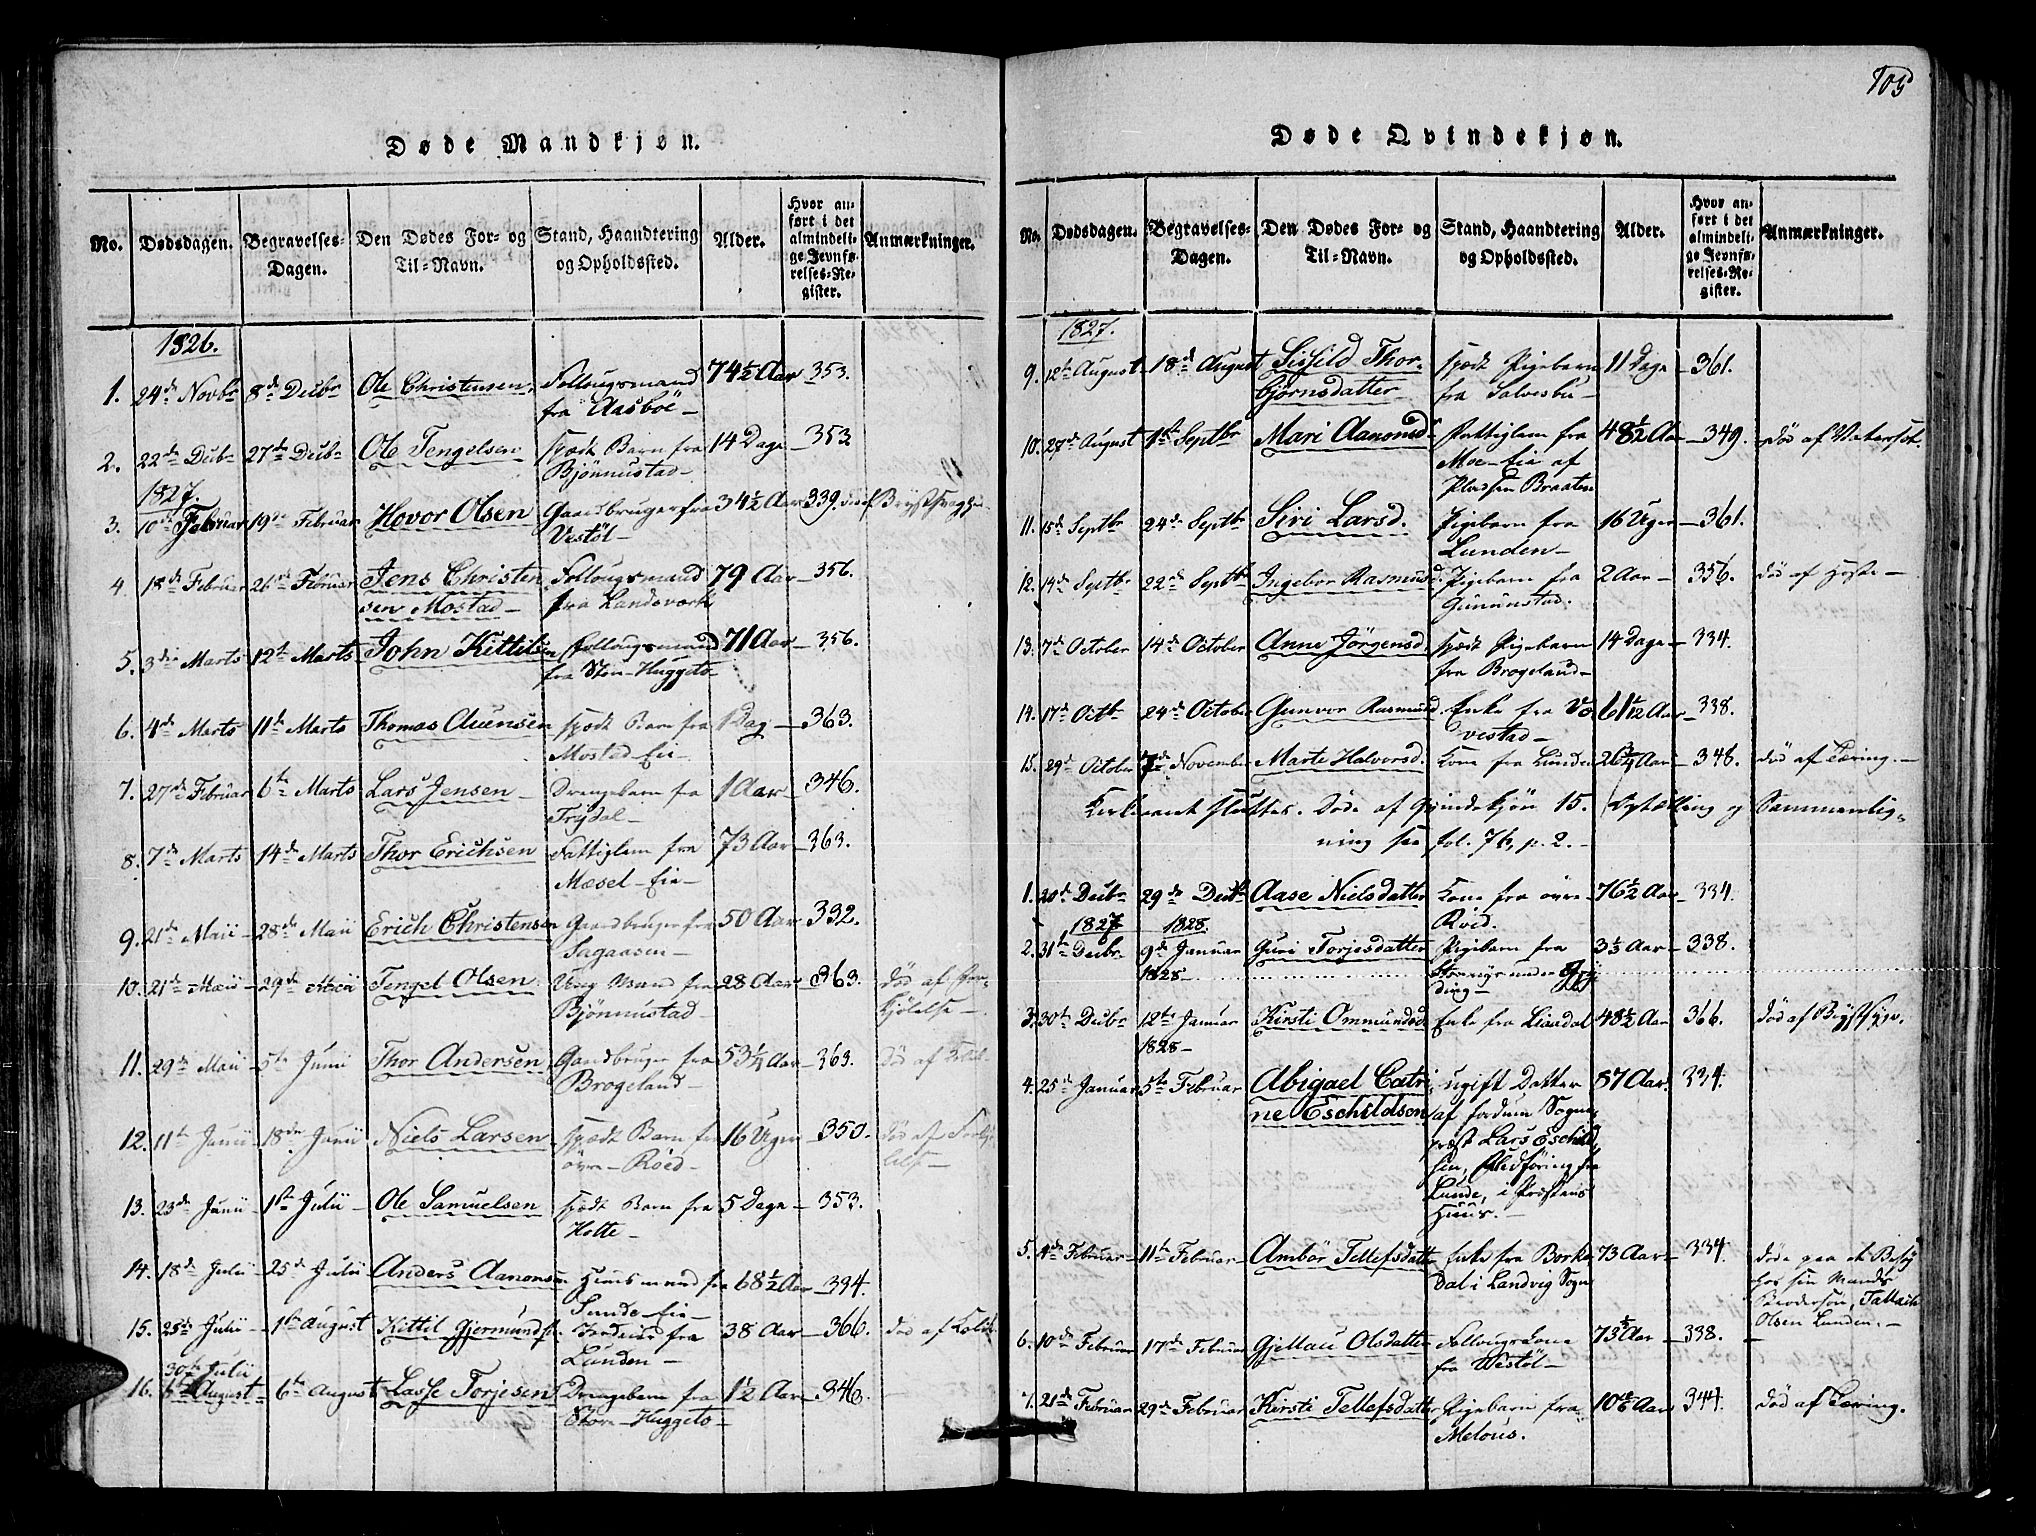 105
Døde Mandkjøn.
No. Dødsdagen. Begravelses-Dagen. Den Dødes For- og Til-Navn. Stand, Haandtering og Opholdssted. Alder. Hvor anført i det almindelige Jevnførelses-Register. Anmærkninger.
1826.
1. 24de Novbr 8de Decbr Ole Christensen Follougsmand 74½ Aar 353.
fra Aasboe
2. 22de Decbr 27de Decbr Ole Tengelsen spædt Barn fra 14 Dage 353
Bjönnustad
1827.
3. 10de Februar 19de Februar Hovor Olsen Gaardbruger fra 34½ Aar 339.
Vestöl
4. 18de Februar 26de Februar Jens Christen Follougsmand 79 Aar 356.
sen Mostad fra Landsverk
5. 3die Marts 12te Marts John Kittilsen Follougsmand 71 Aar 356.
fra Sten-Huggets
6. 4de Marts 11te Marts Thomas Aüensen spædt Barn fra 1 Dag 363.
Mostad-Eie
7. 27de Februar 6te Marts Lars Jensen Drengebarn fra 1 Aar 346.
Frydal
8. 7de Marts 14de Marts Thor Erichsen Fattiglem fra 73 Aar 363.
Mæsel-Eie
9. 21de Maii 28de Maii Erich Christensen Gaardbruger fra 50 Aar 332.
Sagaasen
10. 21de Maii 29de Maii Tengel Olsen Ung Mand fra 28 Aar 363. död af For-
Bjönnustad kjölelse
11. 29de Maii 5te Junii Thor Andersen Gaardbruger fra 53¼ Aar 363. död af
Brogeland
12. 11te Junii 18de Junii Niels Larsen spædt Barn fra 16 Uger 350. död af
övre Röed
13. 23de Junii 1ste Julii Ole Samuelsen spædt Barn fra 5 Dage 353.
Holte
14. 18de Julii 25de Julii Anders Aanonsen Huusmand fra 68½ Aar 334.
Sunde-Eie
15. 25de Julii 1ste August Kittil Gjermunds. Inderst fra 38 Aar 366. död af
Lunden
30te Julii
16. August 6te August Lasse Torjesen Drengebarn fra 1½ Aar 346.
Huggets
Døde Qvindekjøn.
No. Dødsdagen. Begravelses-Dagen. Den Dødes For- og Til-Navn. Stand, Haandtering og Opholdssted. Alder. Hvor anført i det almindelige Jevnførelses-Register. Anmærkninger.
1827.
9. 12te August 18de August Sissild Thor- spædt Pigebarn 11 Dage 361.
björnsdatter fra Salvesbu
10. 27de August 1ste Septbr Mari Aanonsd. Fattiglem fra 48½ Aar 349. död af Vatersot.
Moe-Eie af
Pladsen Braaten
11. 15de Septbr 24de Septbr Siri Larsd. Pigebarn fra 16 Uger 361.
Lunden
12. 14de Septbr 22de Septbr Ingebor Rasmusd. Pigebarn fra 2 Aar 356. död af Hoste
Gununstad.
13. 7de October 14de October Anne Jörgensd. spædt Pigebarn 14 Dage 334.
fra Brogeland
14. 17de Octbr 24de October Gunvor Rasmusd. Enke fra Væ 338.
vestad
15. 29de October 7de November Marte Halvorsd. Kone fra Lunde 26¾ Aar 348. död af Tæring.
Kirkeaaret sluttes. Döde af Qvindekjön 15. Optælling og Sammenlig-
ning see fol. 76, p. 2.
1. 20de Decbr 29de Decbr Aase Nielsdatter Kone fra övre 76½ Aar 334.
1827 1828. Röed.
2. 31te Decbr 9de Januar Guri Torjesdatter Pigebarn fra 338.
1828
3. 30te Decbr 12te Januar Kirsti Ommundsd. Enke fra Liendal 48½ Aar 366. död af Brystsyge.
1828
4. 25de Januar 5te Februar Abigael Catri- ugift Datter 87 Aar 334.
ne Eschildsen af fordum Sogne-
præst Lars Eschild-
sen, Oledföring fra
Lunde, i Præstens
Huus.
5. 4de Februar 11te Februar Ambör Tellefsdatter Enke fra Borke 73 Aar 334. döde paa et Besög
dal i Landvig Sogn hos sin Mands
Brodersön, Tallach
Olsen Lunden.
6. 10de Februar 17de Februar Gjellau Olsdatter Follougskone 338.
fra Vestöl
7. 21de Februar 29de Februar Kirsti Tellefsdatter Pigebarn fra 344. död af Tæring.
Melöus.